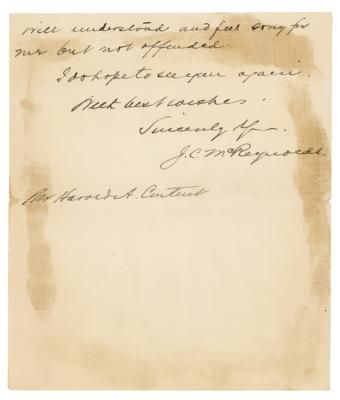 will understand and feel sorry for
me but not offended.
I do hope to see you again.
With best wishes.
Sincerely Yrs.
J. C. McReynolds.
Mr Harold A. Content